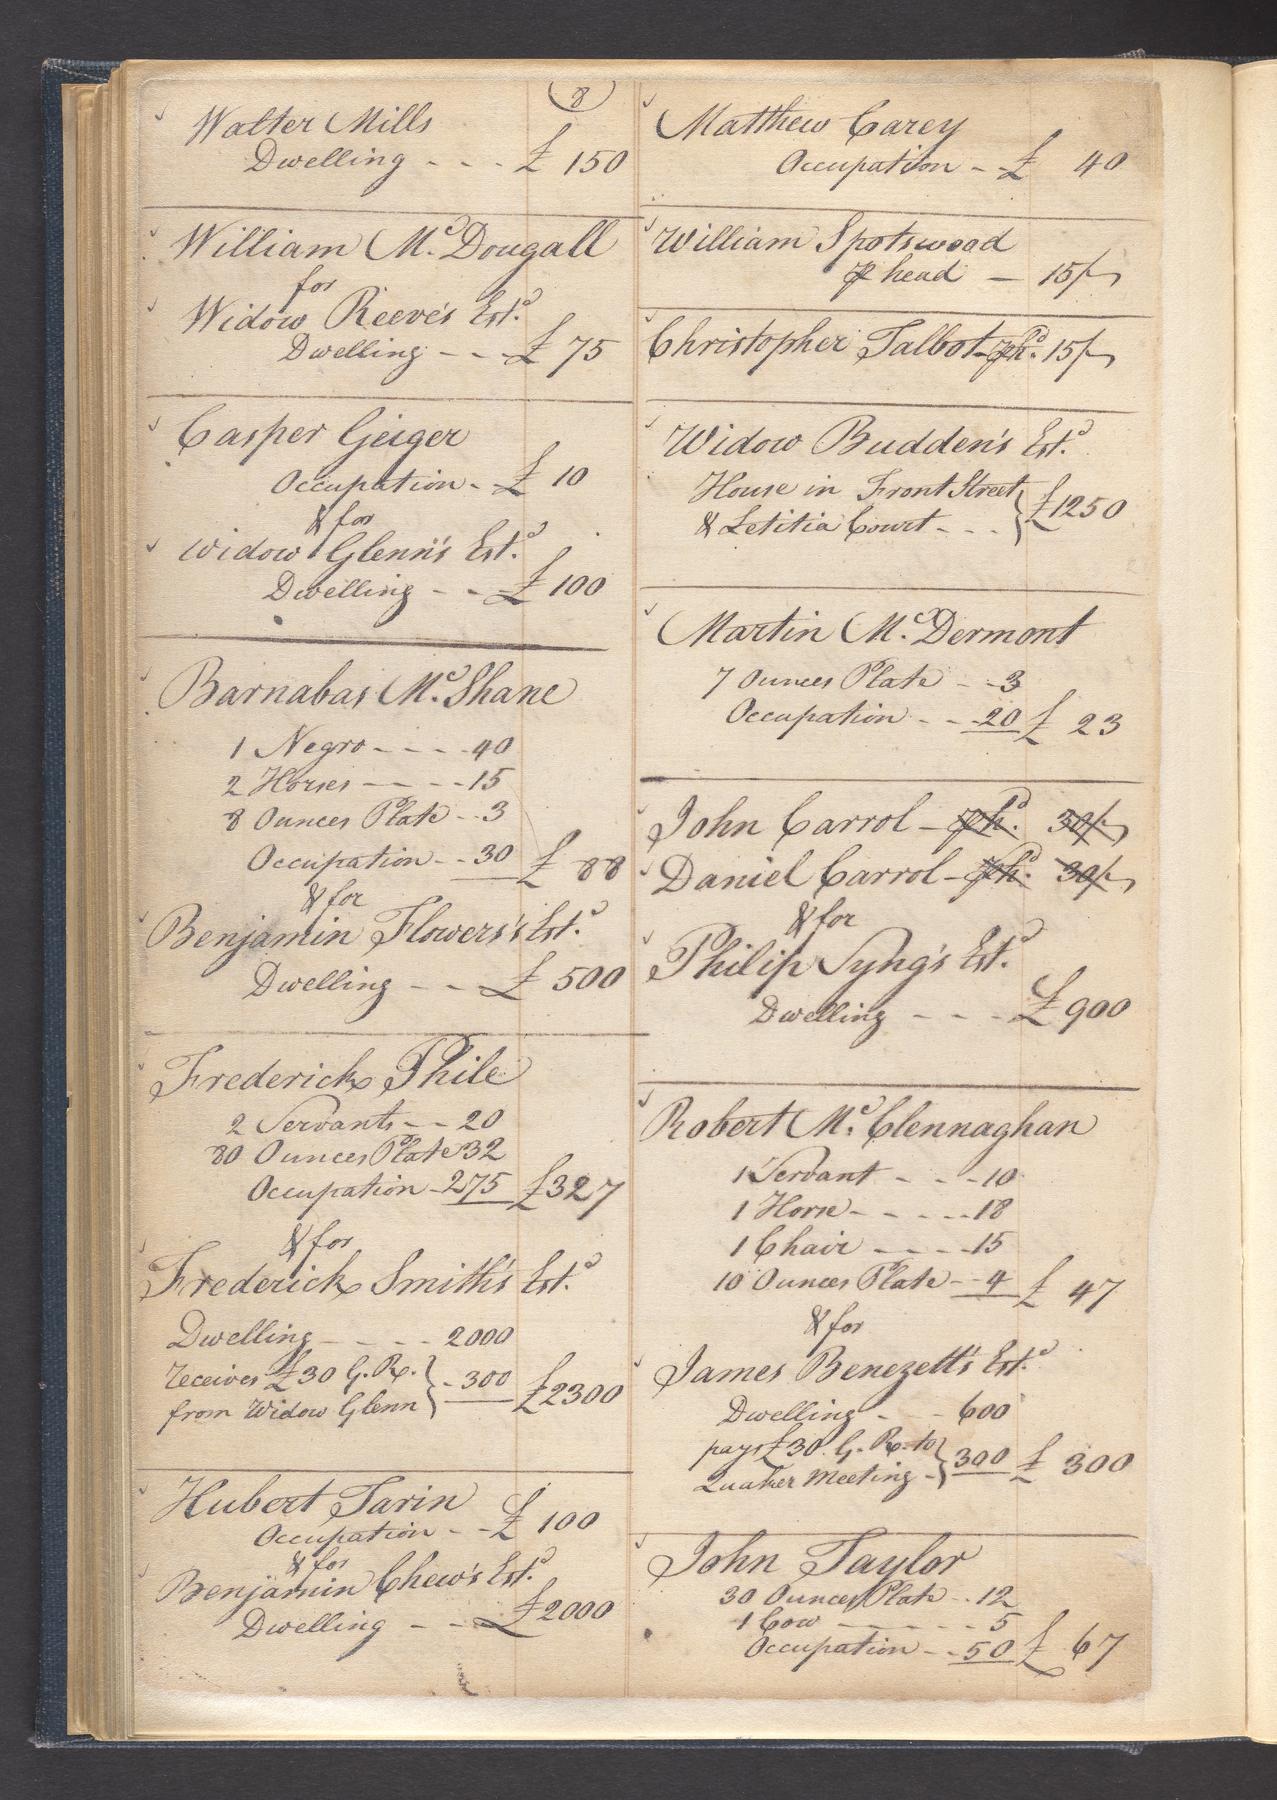 8
Walter Mills
Dwelling - - - £ 150
William Mc. Dougall
for
Widow Reeve's Estd.
Dwelling - - - £ 75
Casper Geiger
Occupation - £ 10
& for
Widow Glenn's Estd.
Dwelling - - £ 100
Barnabas Mc. Shane
1 Negro - - - - 40
2 Horses - - - - 15
8 Ounces Plate - - 3
Occupation - - 30 £ 88
& for
Benjamin Flowers's Estd.
Dwelling - - £ 500
Frederick Phile
2 Servants - - 20
80 Ounces Plate 32
Occupation - 275 £ 327
& for
Frederick Smith's Estd.
Dwelling - - - - 2000
receives £30 G. R. } - 300 £ 2300
from Widow Glenn
Hubert Tarin
Occupation - - £ 100
& for
Benjamin Chew's Estd.
Dwelling - - £ 2000
Matthew Carey
Occupation - - £ 40
William Spotswood
⅌ head - 15/-
Christopher Talbot - ⅌ hd. 15/-
Widow Budden's Estd.
House in Front Street } £ 1250
& Letitia Court - - -
Martin Mc. Dermont
7 Ounces Plate - - 3
Occupation - - - 20 £ 23
John Carrol - ⅌ hd. 30/-
Daniel Carrol - ⅌ hd. 30/-
& for
Philip Syng's Estd.
Dwelling - - - £ 900
Robert Mc. Clennaghan
1 Servant - - - 10
1 Horse - - - - - 18
1 Chair - - - - 15
10 Ounces Plate - - 4 £ 47
& for
James Benezett's Estd.
Dwelling - - 600
pays £30 G. R. to } 300 £ 300
Quaker Meeting -
John Taylor
30 Ounces Plate - - 12
1 Cow - - - - - - 5
Occupation - - 50 £ 67